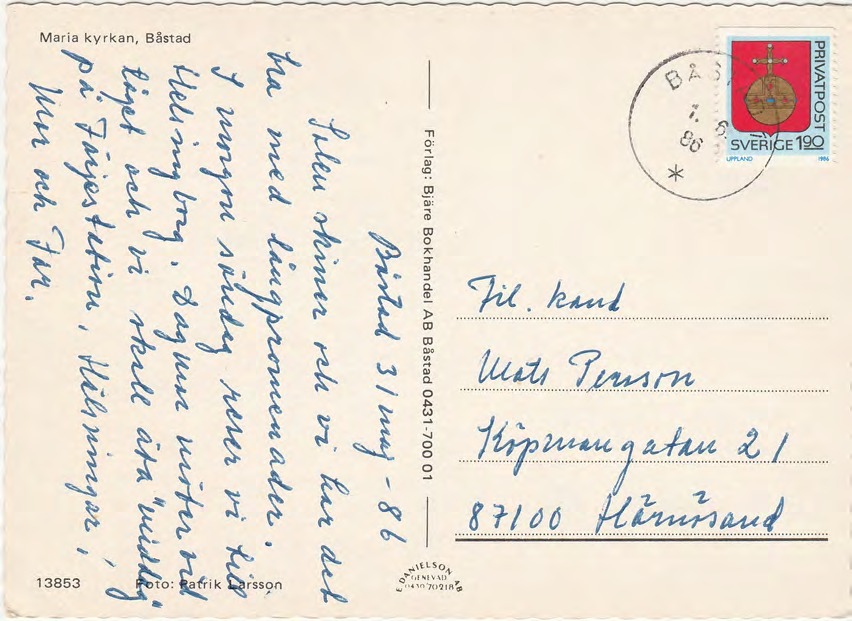 Maria kyrkan, Båstad
Båstad 31 maj - 86
Solen skiner och vi har det
bra med långpromenader.
I morgon söndag reser vi till
Helsingborg. Dagmar möter vid
tåget och vi skall äta "middag"
på Färjestation. Hälsningar,
Mor och Far.
13853
Foto: Patrik Larsson
Förlag: Bjäre Bokhandel AB Båstad 0431-700 01
E DANIELSON AB
GENEVAD
0430 70218
BÅS
1. 6.
86
*
PRIVATPOST
SVERIGE 190
UPPLAND 1986
Fil. kand
Mats Persson
Köpmangatan 21
87100 Härnösand